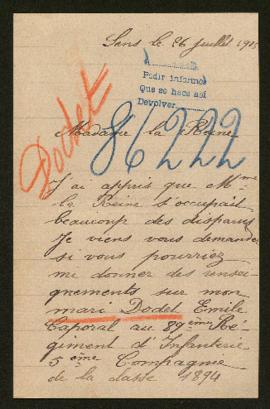 Sens le 26 juillet 1915
Pedir informe
Que se hace así
Devolver
Madame la Reine
Dodet
86222
J'ai appris que Mme
la Reine s'occupait
beaucoup des disparus
Je viens vous demander
si vous pourriez
me donner des rensei-
gnements sur mon
mari Dodet Emile
Caporal au 89ème Ré-
giment d'Infanterie
5ème Compagnie
de la classe 1894